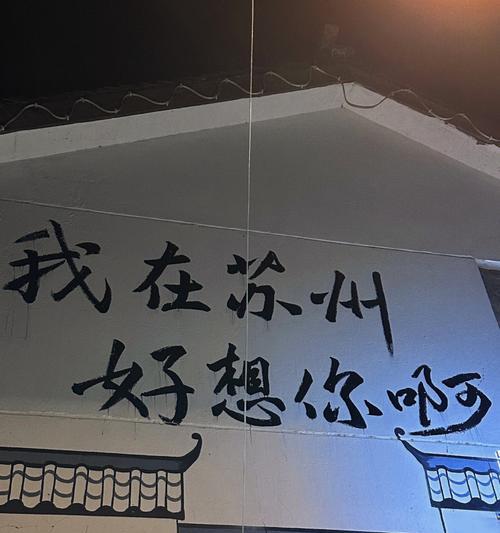 我在苏州
好想你啊